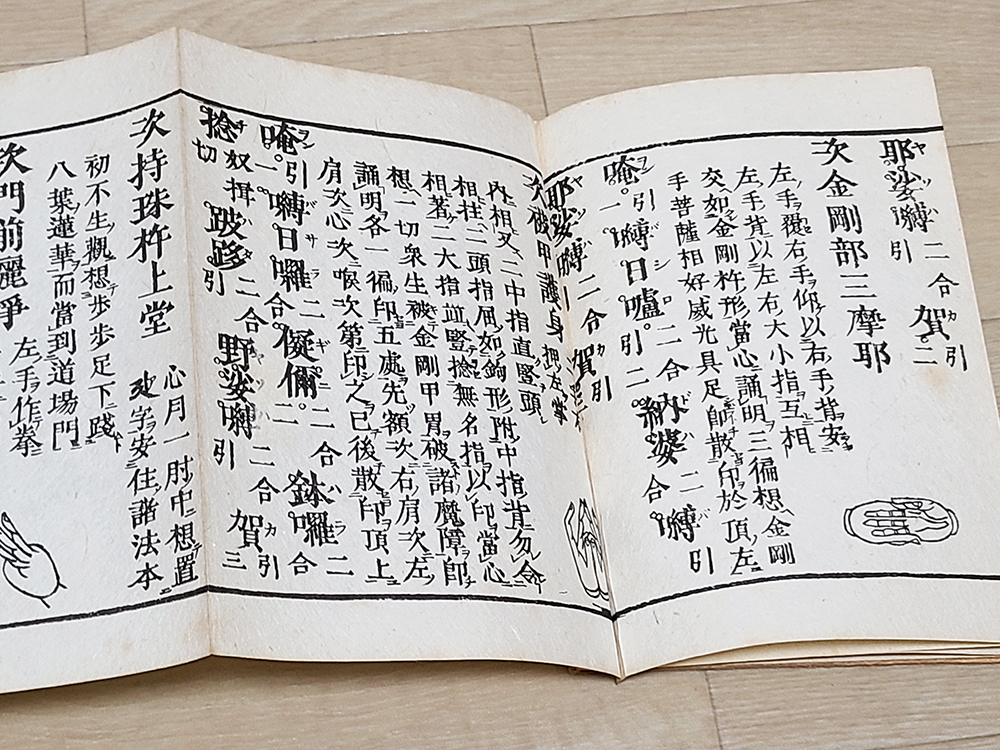 耶娑嚩引二合賀引二
次金剛部三摩耶
左手覆右手仰以右手背安
左手背以左右大小指互相
交如金剛杵形當心誦明三徧想金剛
手菩薩相好威光具足即散印於頂左
唵引一嚩日嚧引二合納婆二合嚩引
耶娑嚩引二合賀引
次破甲護身押左掌
內相叉二中指直豎頭
相柱二頭指屈如鉤形附中指背勿令
相著二大指並豎捻無名指以印當心
想一切衆生被金剛甲冑破諸魔障即
誦明各一徧印五處先額次右肩次左
肩次心次喉次第印之已後散印頂上
唵引一嚩日囉二合儗儞二合鉢囉二合
捻奴揖切跛跢引二合野娑嚩引二合賀引三
次持珠杵上堂 心月一肘中想置
𑖀字安住諧法本
初不生觀想步步足下踐
八葉蓮華而當到道場門
次門前灑淨 左手作拳